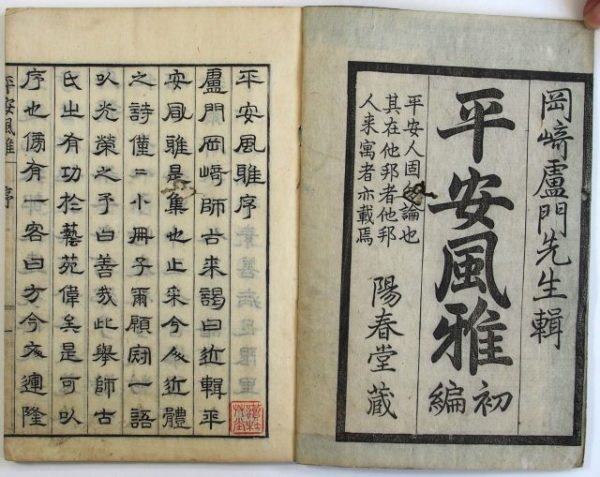 岡﨑盧門先生輯
平安風雅 初編
平安人固論也
其在他邦者他邦
人来寓者亦載焉
陽春堂藏
平安風雅序
盧門岡﨑師古来謁曰近輯平
安風雅是集也止采今人近體
之詩僅二小冊子爾願冠一語
以光榮之予曰善哉此舉師古
氏之有功於藝苑偉矣是可以
序也傍有一客曰方今文運隆
平安風雅 序